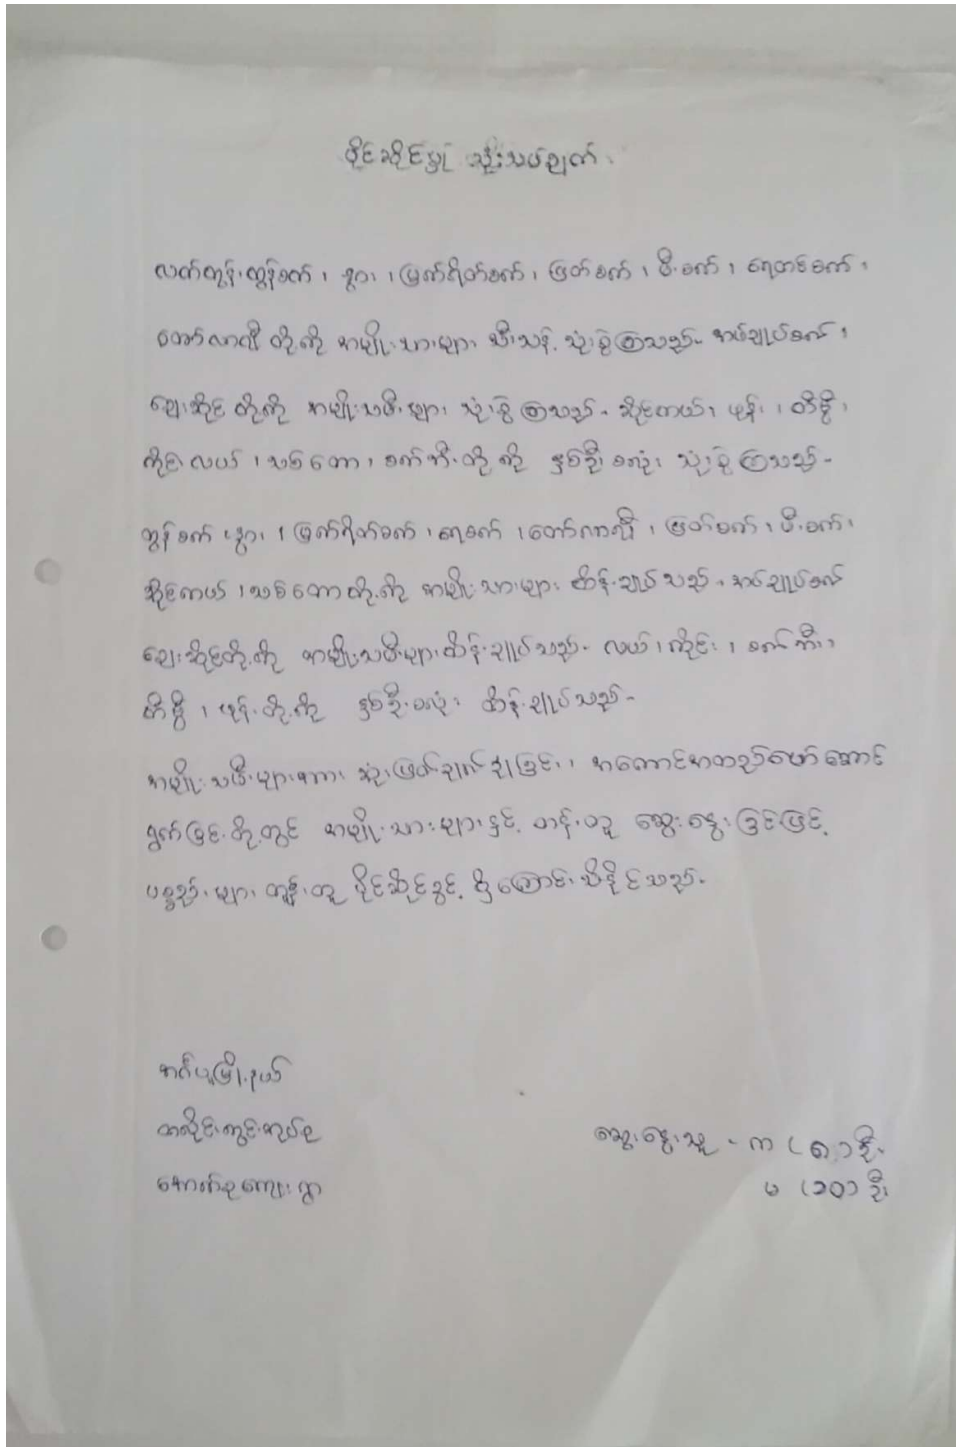 ပိုင်ဆိုင်မှု သုံးသပ်ချက်
လက်တွန်းထွန်စက်၊ နွား၊ မြက်ရိတ်စက်၊ ဖြတ်စက်၊ မီးစက်၊ ရေတင်စက်၊
တော်လာဂျီ တို့ကို အမျိုးသားများ သီးသန့် သုံးစွဲကြသည်။ အပ်ချုပ်စက်၊
ဈေးဆိုင် တို့ကို အမျိုးသမီးများ သုံးစွဲကြသည်။ ဆိုင်ကယ်၊ ဖုန်း၊ တီဗွီ၊
ကိုင်းလယ်၊ သစ်တော၊ စက်ဘီး တို့ကို နှစ်ဦးစလုံး သုံးစွဲကြသည်။
ထွန်စက်၊ နွား၊ မြက်ရိတ်စက်၊ ရေစက်၊ တော်လာဂျီ၊ ဖြတ်စက်၊ မီးစက်၊
ဆိုင်ကယ်၊ သစ်တောတို့ကို အမျိုးသားများ ထိန်းချုပ်သည်။ အပ်ချုပ်စက်
ဈေးဆိုင်တို့ကို အမျိုးသမီးများထိန်းချုပ်သည်။ လယ်၊ ကိုင်း၊ စက်ဘီး၊
တီဗွီ၊ ဖုန်းတို့ကို နှစ်ဦးစလုံး ထိန်းချုပ်သည်။
အမျိုးသမီးများအား ဆုံးဖြတ်ချက်ချခြင်း၊ အကောင်အထည်ဖော်ဆောင်
ရွက်ခြင်းတို့တွင် အမျိုးသားများနှင့် တန်းတူ ဆွေးနွေးခြင်းဖြင့်
ပစ္စည်းများ တန်းတူ ပိုင်ဆိုင်ခွင့် ရှိကြောင်း သိနိုင်သည်။
အင်္ဂပူမြို့နယ်
ထလိုင်းတွင်းအုပ်စု
အောက်စုကျေးရွာ
ဆွေးနွေးသူ - က (၈) ဦး
မ (၁၀) ဦး